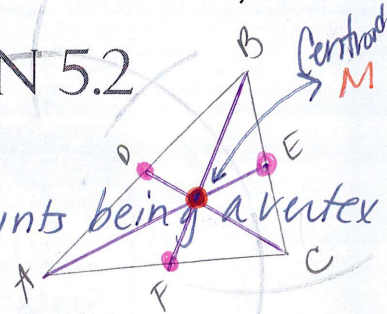 B
Centroid
N 5.2
M
D
E
nts being a vertex
A
F
C